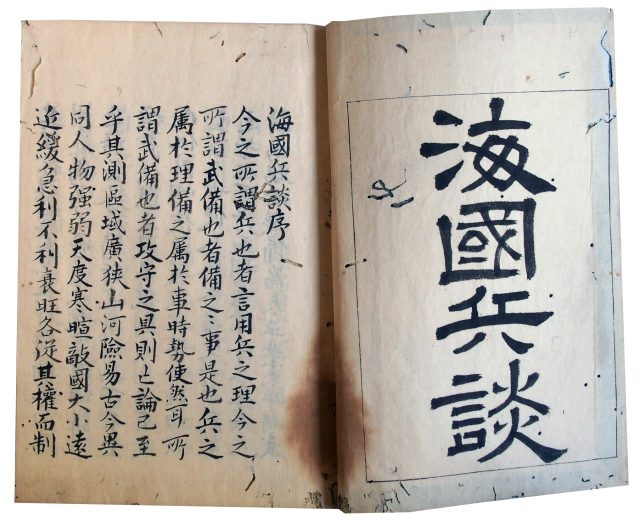 海國兵談
海國兵談序
今之所謂兵也者言用兵之理今之
所謂武備也者備之〻事是也兵之
属於理備之属於事時勢使然耳所
謂武備也者攻守之具則亡論已至
乎其測區域廣狹山河險易古今異
同人物强弱天度寒暄敵國大小遠
近緩急利不利衰旺各從其權而制